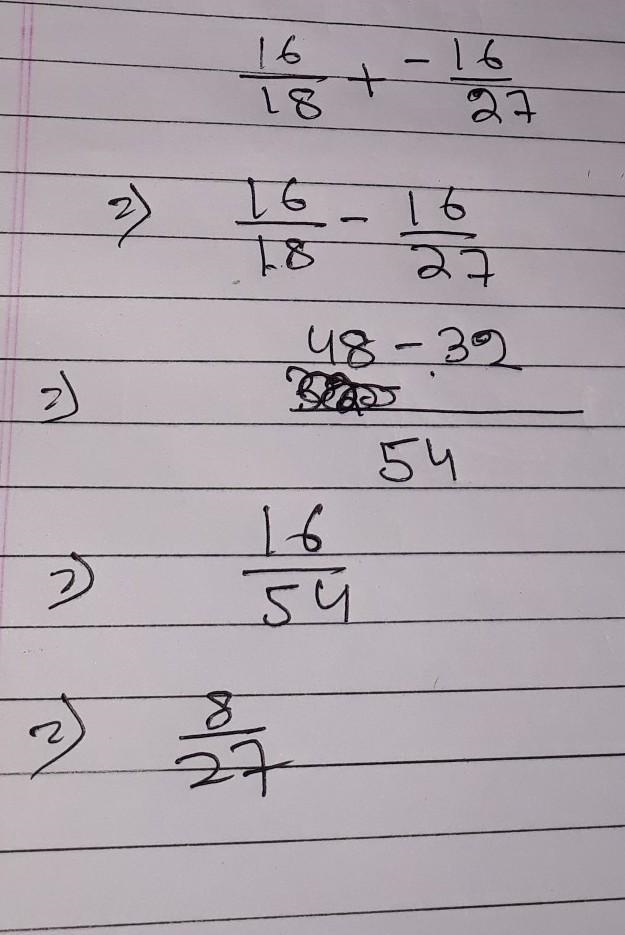 16/18 + -16/27
=) 16/18 - 16/27
=) 48 - 32/54
=) 16/54
=) 8/27